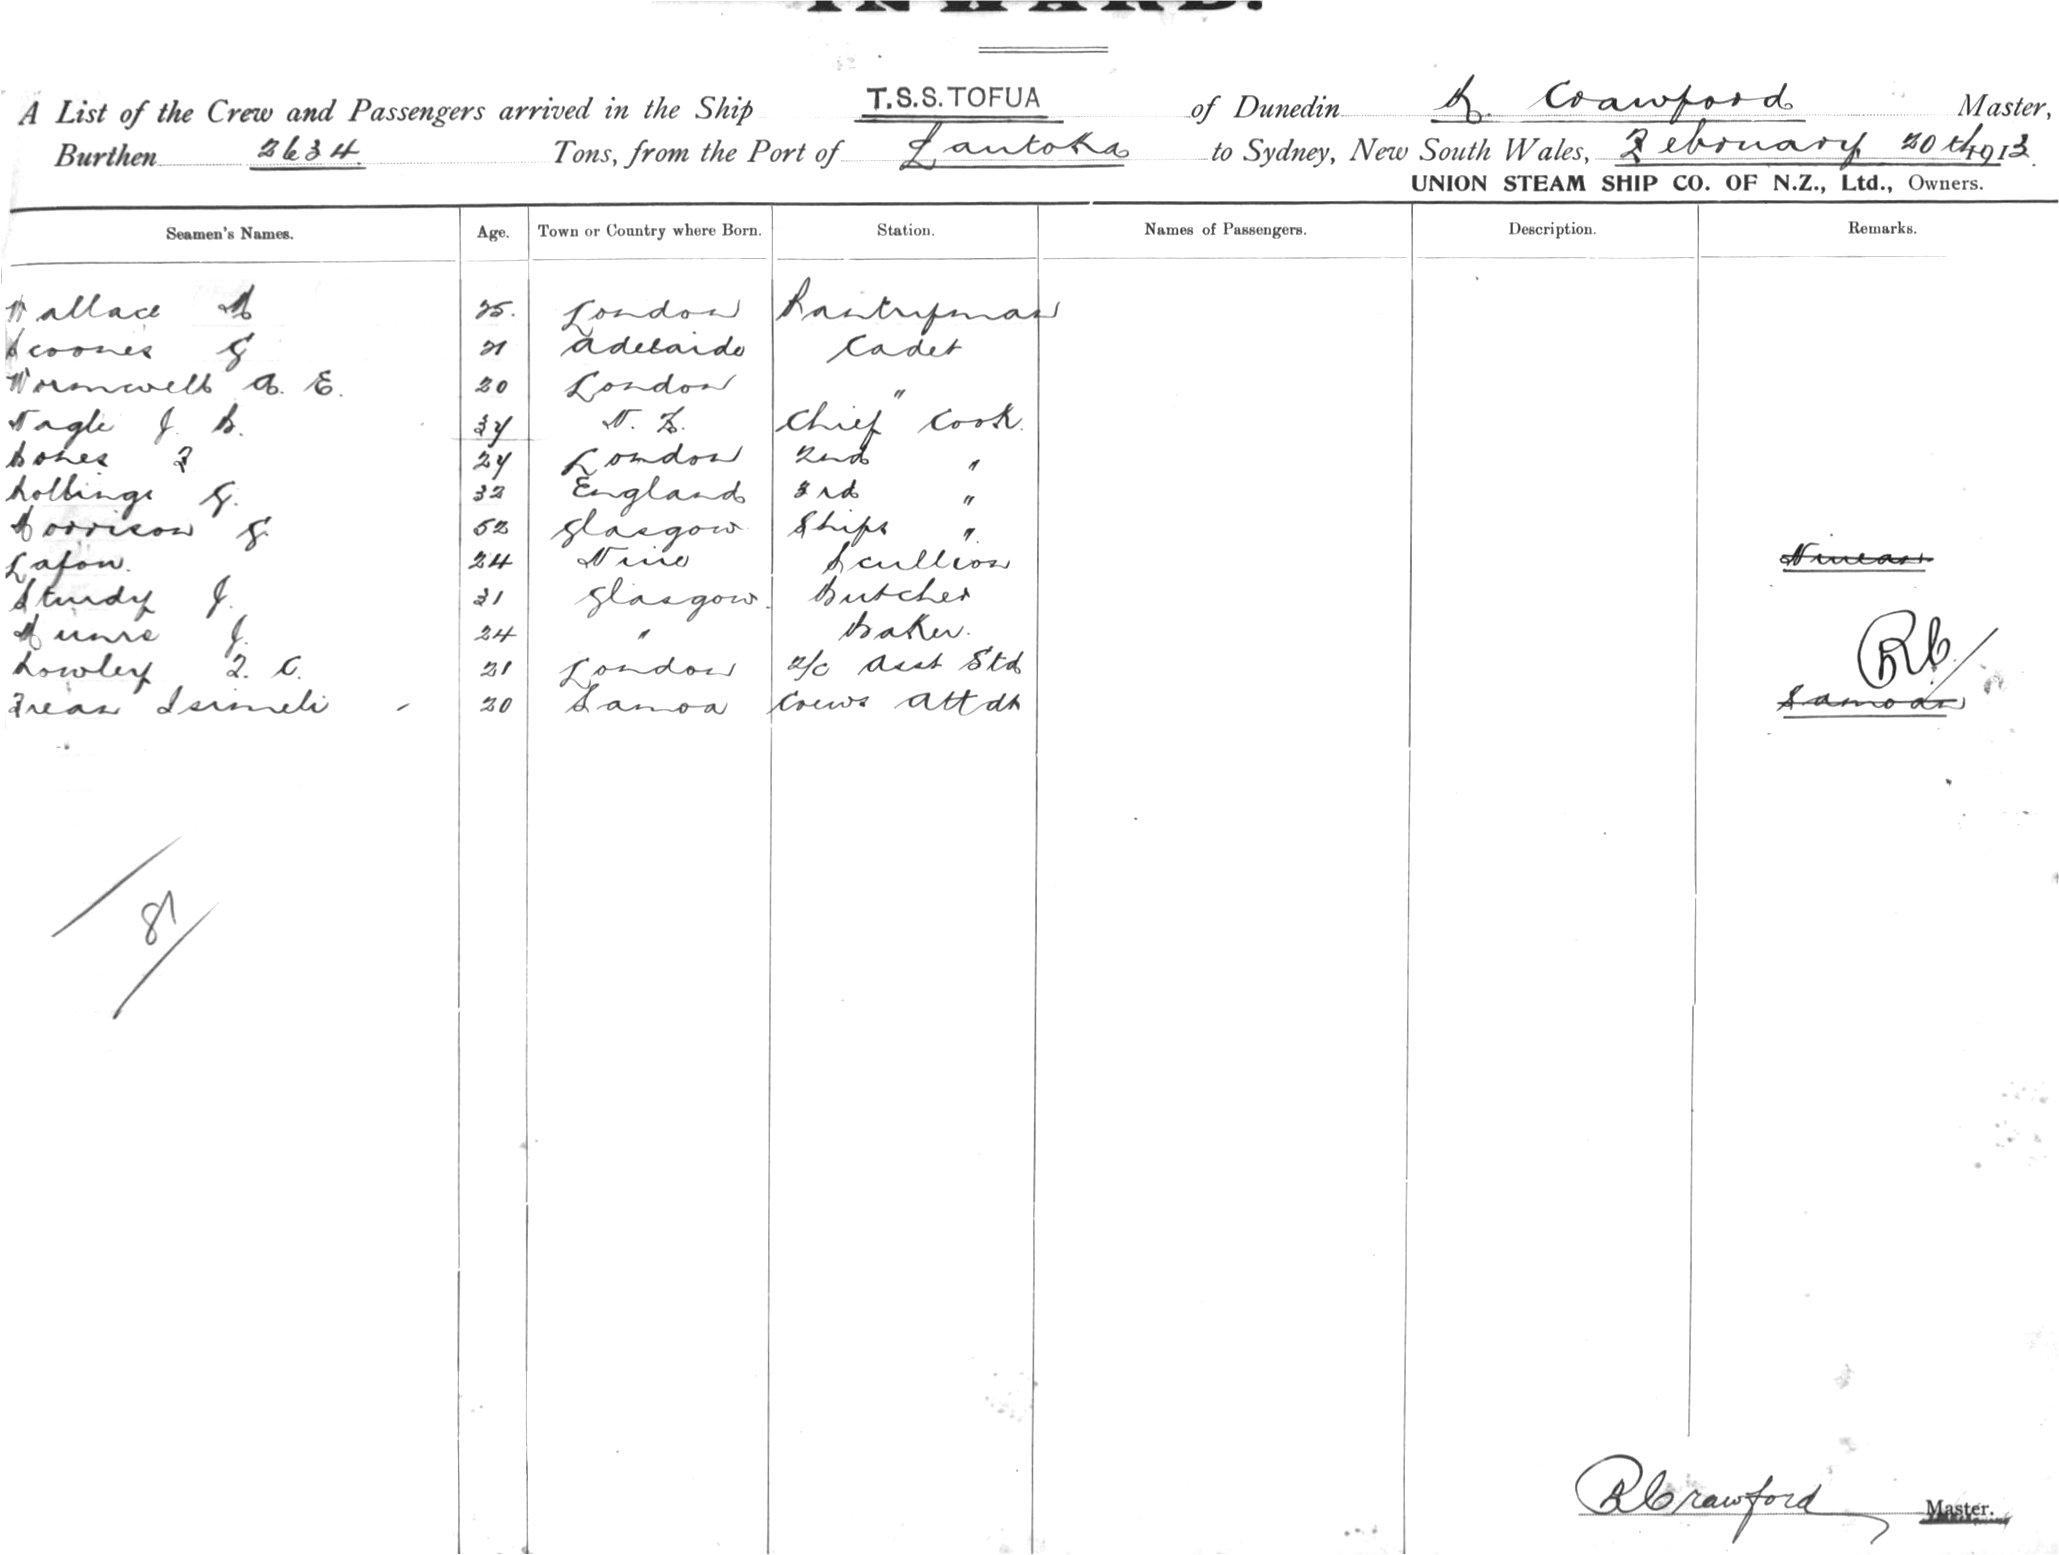 INWARD.
A List of the Crew and Passengers arrived in the Ship T.S.S. TOFUA of Dunedin R. Crawford Master,
Burthen 2634 Tons, from the Port of Lautoka to Sydney, New South Wales, February 20th 1913.
UNION STEAM SHIP CO. OF N.Z., Ltd., Owners.
Seamen's Names. Age. Town or Country where Born. Station. Names of Passengers. Description. Remarks.
Wallace M 25. London Pantryman
Scoones G 21 Adelaide Cadet
Wormwell A. E. 20 London "
Nagle J. B. 34 N. Z. Chief Cook.
Bones F 24 London 2nd "
Hollings G. 32 England 3rd "
Morrison G. 52 Glasgow Ships "
Lafon. 24 Niue Scullion Niuean
Sturdy J. 31 Glasgow. Butcher
Munro J. 24 " Baker.
Lowley F. C. 21 London 2/c Asst Std RC
Frean Isimeli - 20 Samoa Crews Attdt Samoan
81
RCrawford Master.